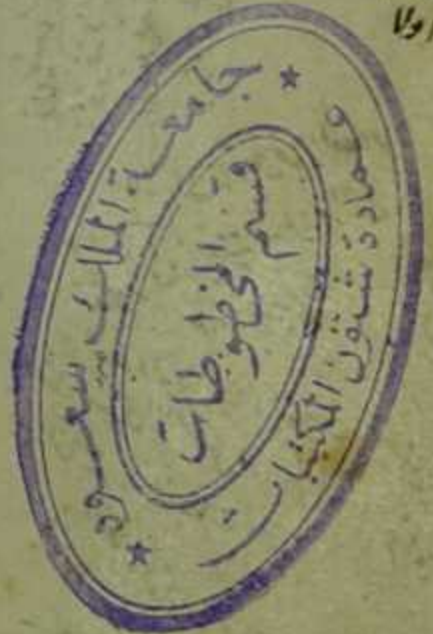 اولا
جامعة الملك سعود
قسم المخطوطات
عمادة شئون المكتبات